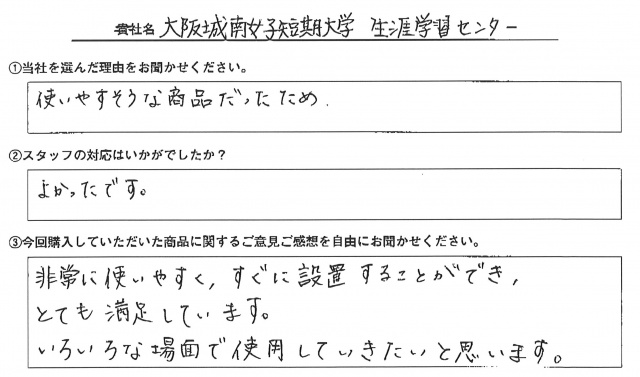 貴社名 大阪城南女子短期大学 生涯学習センター
①当社を選んだ理由をお聞かせください。
使いやすそうな商品だったため.
②スタッフの対応はいかがでしたか？
よかったです。
③今回購入していただいた商品に関するご意見ご感想を自由にお聞かせください。
非常に使いやすく，すぐに設置することができ，
とても満足しています。
いろいろな場面で使用していきたいと思います。